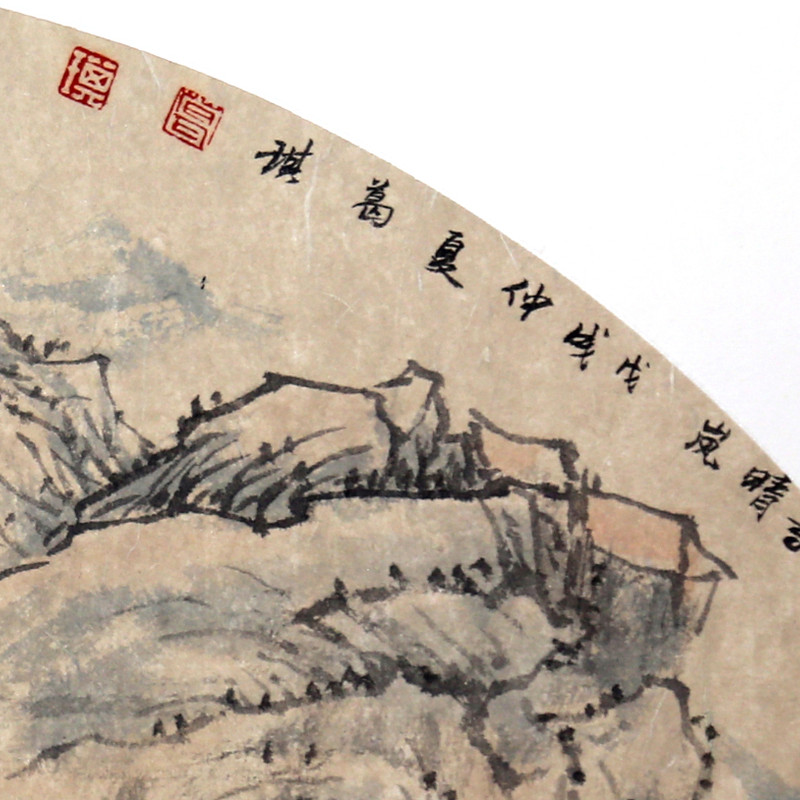 晴岚 戊戌仲夏 葛琪